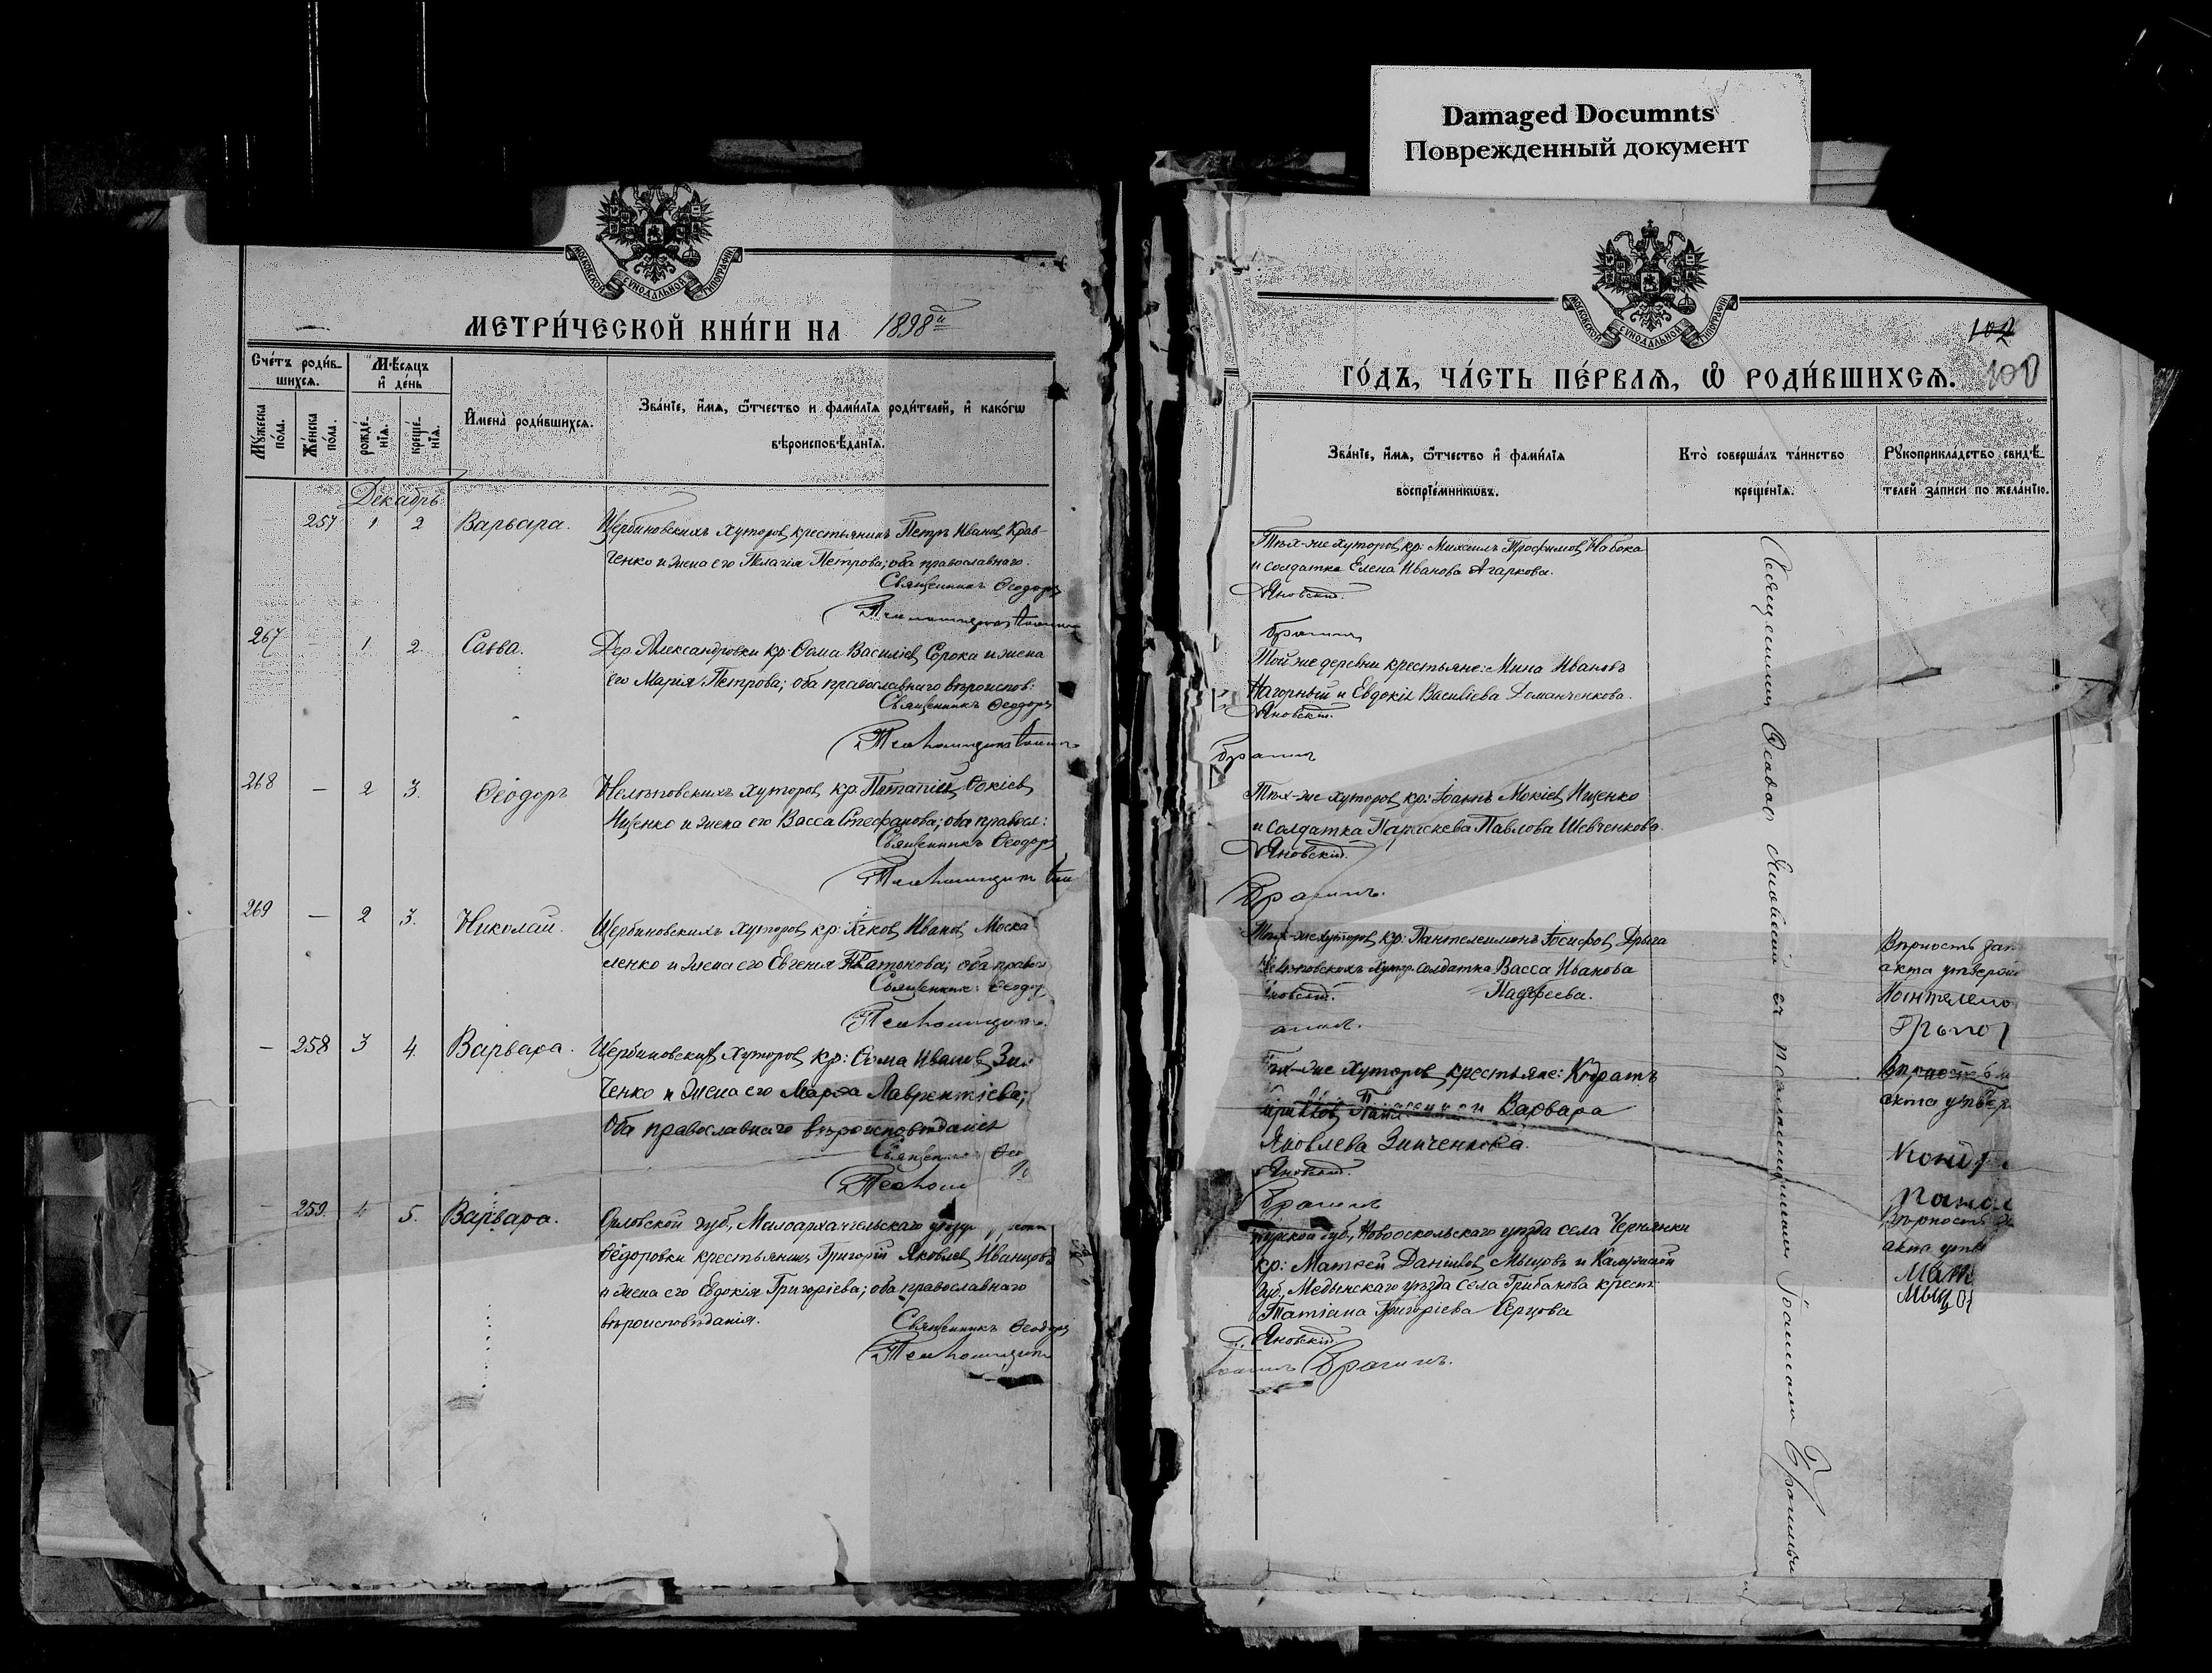 Damaged Documnts
Поврежденный документ
МОСКОВСКОЙ СѴНОДАЛЬНОЙ ТИПОГРАФІИ
МЕТРИ́ЧЕСКОЙ КНИ́ГИ НА 1898й
Сче́тъ роди́в-
шихся.
Мѣ́сяцъ
и҆ де́нь
Мꙋ́жеска
по́ла.
Же́нска
по́ла.
рожде́-
нїя.
креще́-
нїя.
И҆мена̀ роди́вшихся.
Зва́нїе, и҆́мя, ѻ҆́тчество и фами́лїя роди́телей, и҆ како́гѡ
вѣроисповѣ́данїя.
Декабрь
257 1 2 Варвара. Щербиновскихъ хуторов крестьянинъ Петръ Иванов Крав
ченко и жена его Пелагія Петрова; оба православнаго.
Священникъ Ѳеодоръ
267 1 2. Савва. Дер. Александровки кр: Ѳома Василіев Сорока и жена
его Марія Петрова; оба православнаго вѣроиспов:
Священникъ Ѳеодоръ
268 — 2 3. Ѳеодоръ Нелѣповскихъ хуторов кр.
Ищенко и жена его Васса Стефанова; оба правосл:
Священникъ Ѳеодоръ
269 — 2 3. Николай. Щербиновскихъ хуторов кр: Яков Иванов Моска
ленко и жена его Евгенія Платонова; оба правос
Священник: Ѳеодор
— 258 3 4. Варвара. Щербиновских хуторов кр: Ѳома Иванов Зин
ченко и жена его Марѳа Лаврентіева;
Оба православнаго вѣроисповѣданія
Ѳео
— 259. 4 5. Варвара. Орловской губ., Малоархангельскаго уѣзда,
Ѳедоровки крестьянинъ Григорій Яковлев Иванцовъ
и жена его Евдокія Григоріева; оба православнаго
вѣроисповѣданія.
Священникъ Ѳеодоръ
МОСКОВСКОЙ СѴНОДАЛЬНОЙ ТИПОГРАФІИ
102
100
ГО́ДЪ, ЧА́СТЬ ПЕ́РВАЯ, Ѽ РОДИ́ВШИХСЯ.
Зва́нїе, и҆́мя, ѻ҆́тчество и҆ фами́лїя
воспрїе́мникѡвъ.
Кто̀ соверша́лъ та́инство
креще́нїя.
Рꙋкоприкла́дство свидѣ́-
телей за́писи по жела́нїю.
Тѣх-же хуторов кр: Михаилъ Трофимов Набока
и солдатка Елена Иванова Агаркова.
Яновскій.
Брагинъ
Той же деревни крестьяне: Мина Ивановъ
Нагорный и Евдокія Василіева Романченкова.
Яновскій.
Брагинъ
Тѣх-же хуторов кр: Іоаннъ Мокіев Ищенко
и солдатка Параскева Павлова Шевченкова.
Яновскій.
Брагинъ.
Тѣх-же хуторов кр: Пантелеимонъ Іосифов Дрыга
хутор. солдатка Васса Иванова
новскій. Падеѣева.
Тѣх-же хуторов крестьяне: Кодратъ
Варвара
Яковлева Зинченкова.
Яновскій.
Брагинъ
губ., Новооскольскаго уѣзда села Чернянки
кр: Матѳей Даніилов Мыцовъ и Калужской
губ., Медынскаго уѣзда села Грибанова крест:
Татіана Григоріева Серцова
Яновскій
Брагинъ.
Священникъ Ѳеодоръ Яновскій съ псаломщикомъ Іоанномъ Брагинымъ
Вѣрность дан
акта утверж
Пантелемо
Дрыго
Вѣрность
акта утвер
Конд
Панас
Вѣрность
акта утв
Мат
Мыцов